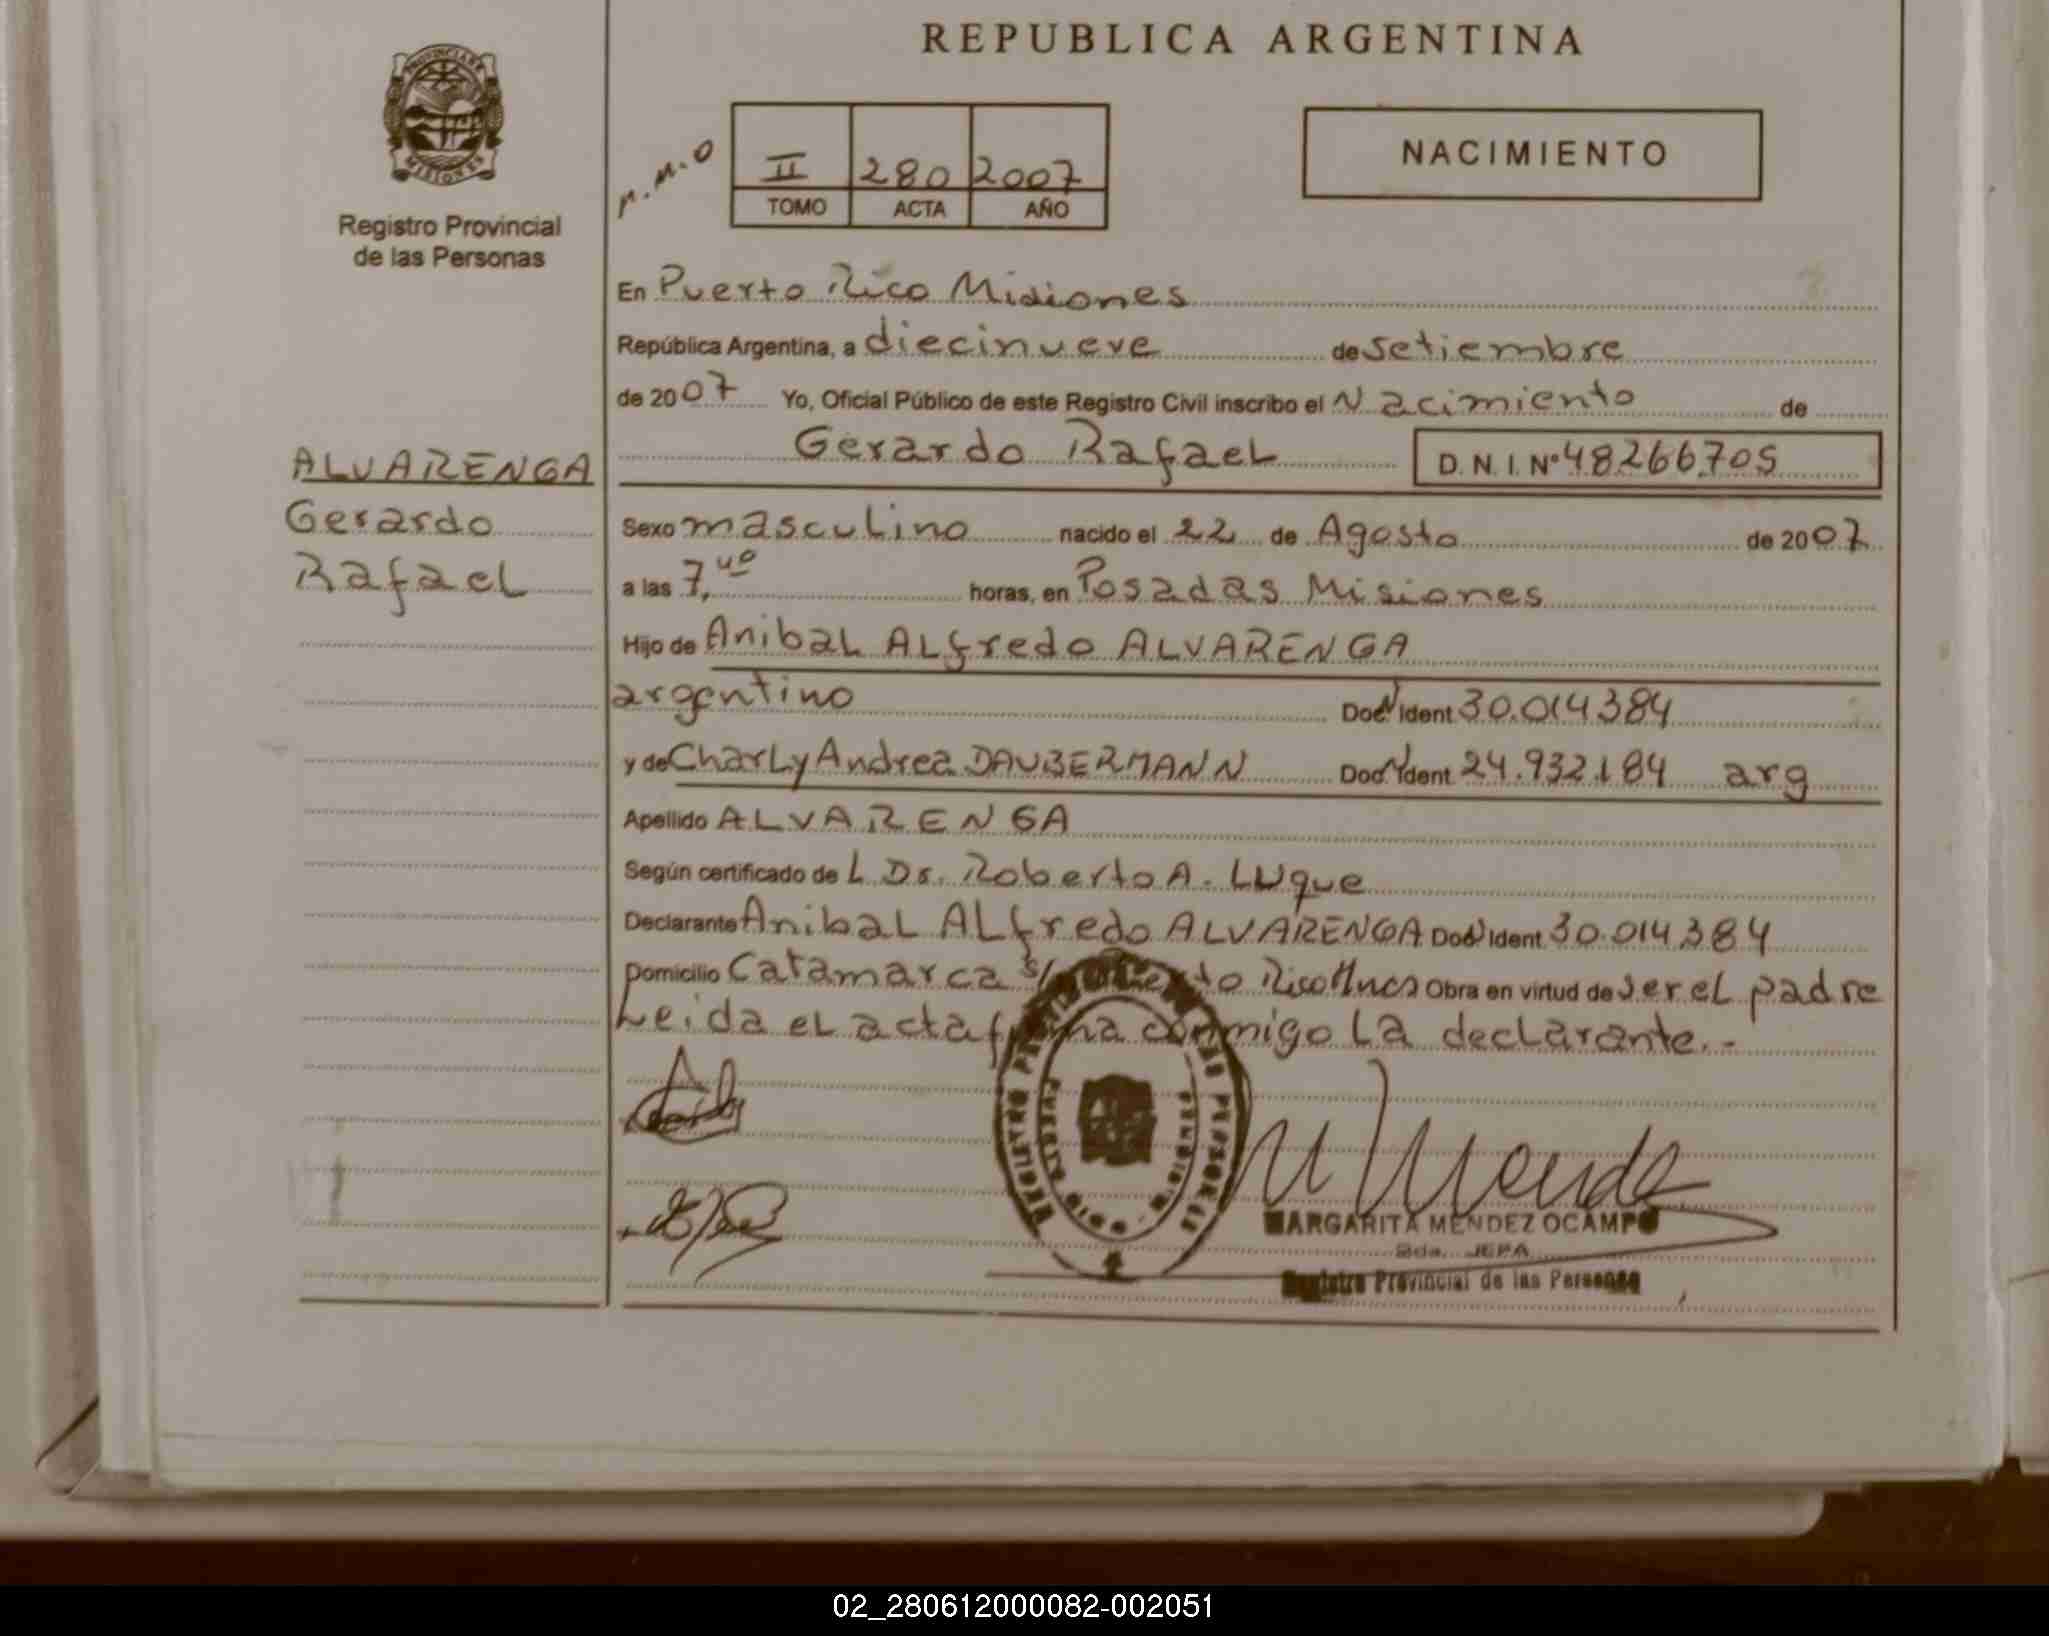 REPUBLICA ARGENTINA
PROVINCIA DE
MISIONES
Registro Provincial
de las Personas
II 280 2007
TOMO ACTA AÑO
NACIMIENTO
En Puerto Rico Misiones
República Argentina, a diecinueve de setiembre
de 2007 Yo, Oficial Público de este Registro Civil inscribo el Nacimiento de
Gerardo Rafael D. N. I. Nº 48266705
ALVARENGA
Gerardo
Rafael
Sexo masculino nacido el 22 de Agosto de 2007
a las 7,40 horas, en Posadas Misiones
Hijo de Anibal Alfredo ALVARENGA
argentino Doc Ident 30.014384
y de Charly Andrea DAUBERMANN Doc Ident 24.932.184 arg
Apellido ALVARENGA
Según certificado del Dr. Roberto A. Luque
Declarante Anibal Alfredo ALVARENGA Doc Ident 30.014.384
Domicilio Catamarca s/ Rico Mnes Obra en virtud de ser el padre
Leida el acta firma conmigo la declarante.-
MARGARITA MENDEZ OCAMPO
2da. JEFA
Registro Provincial de las Personas
02_280612000082-002051